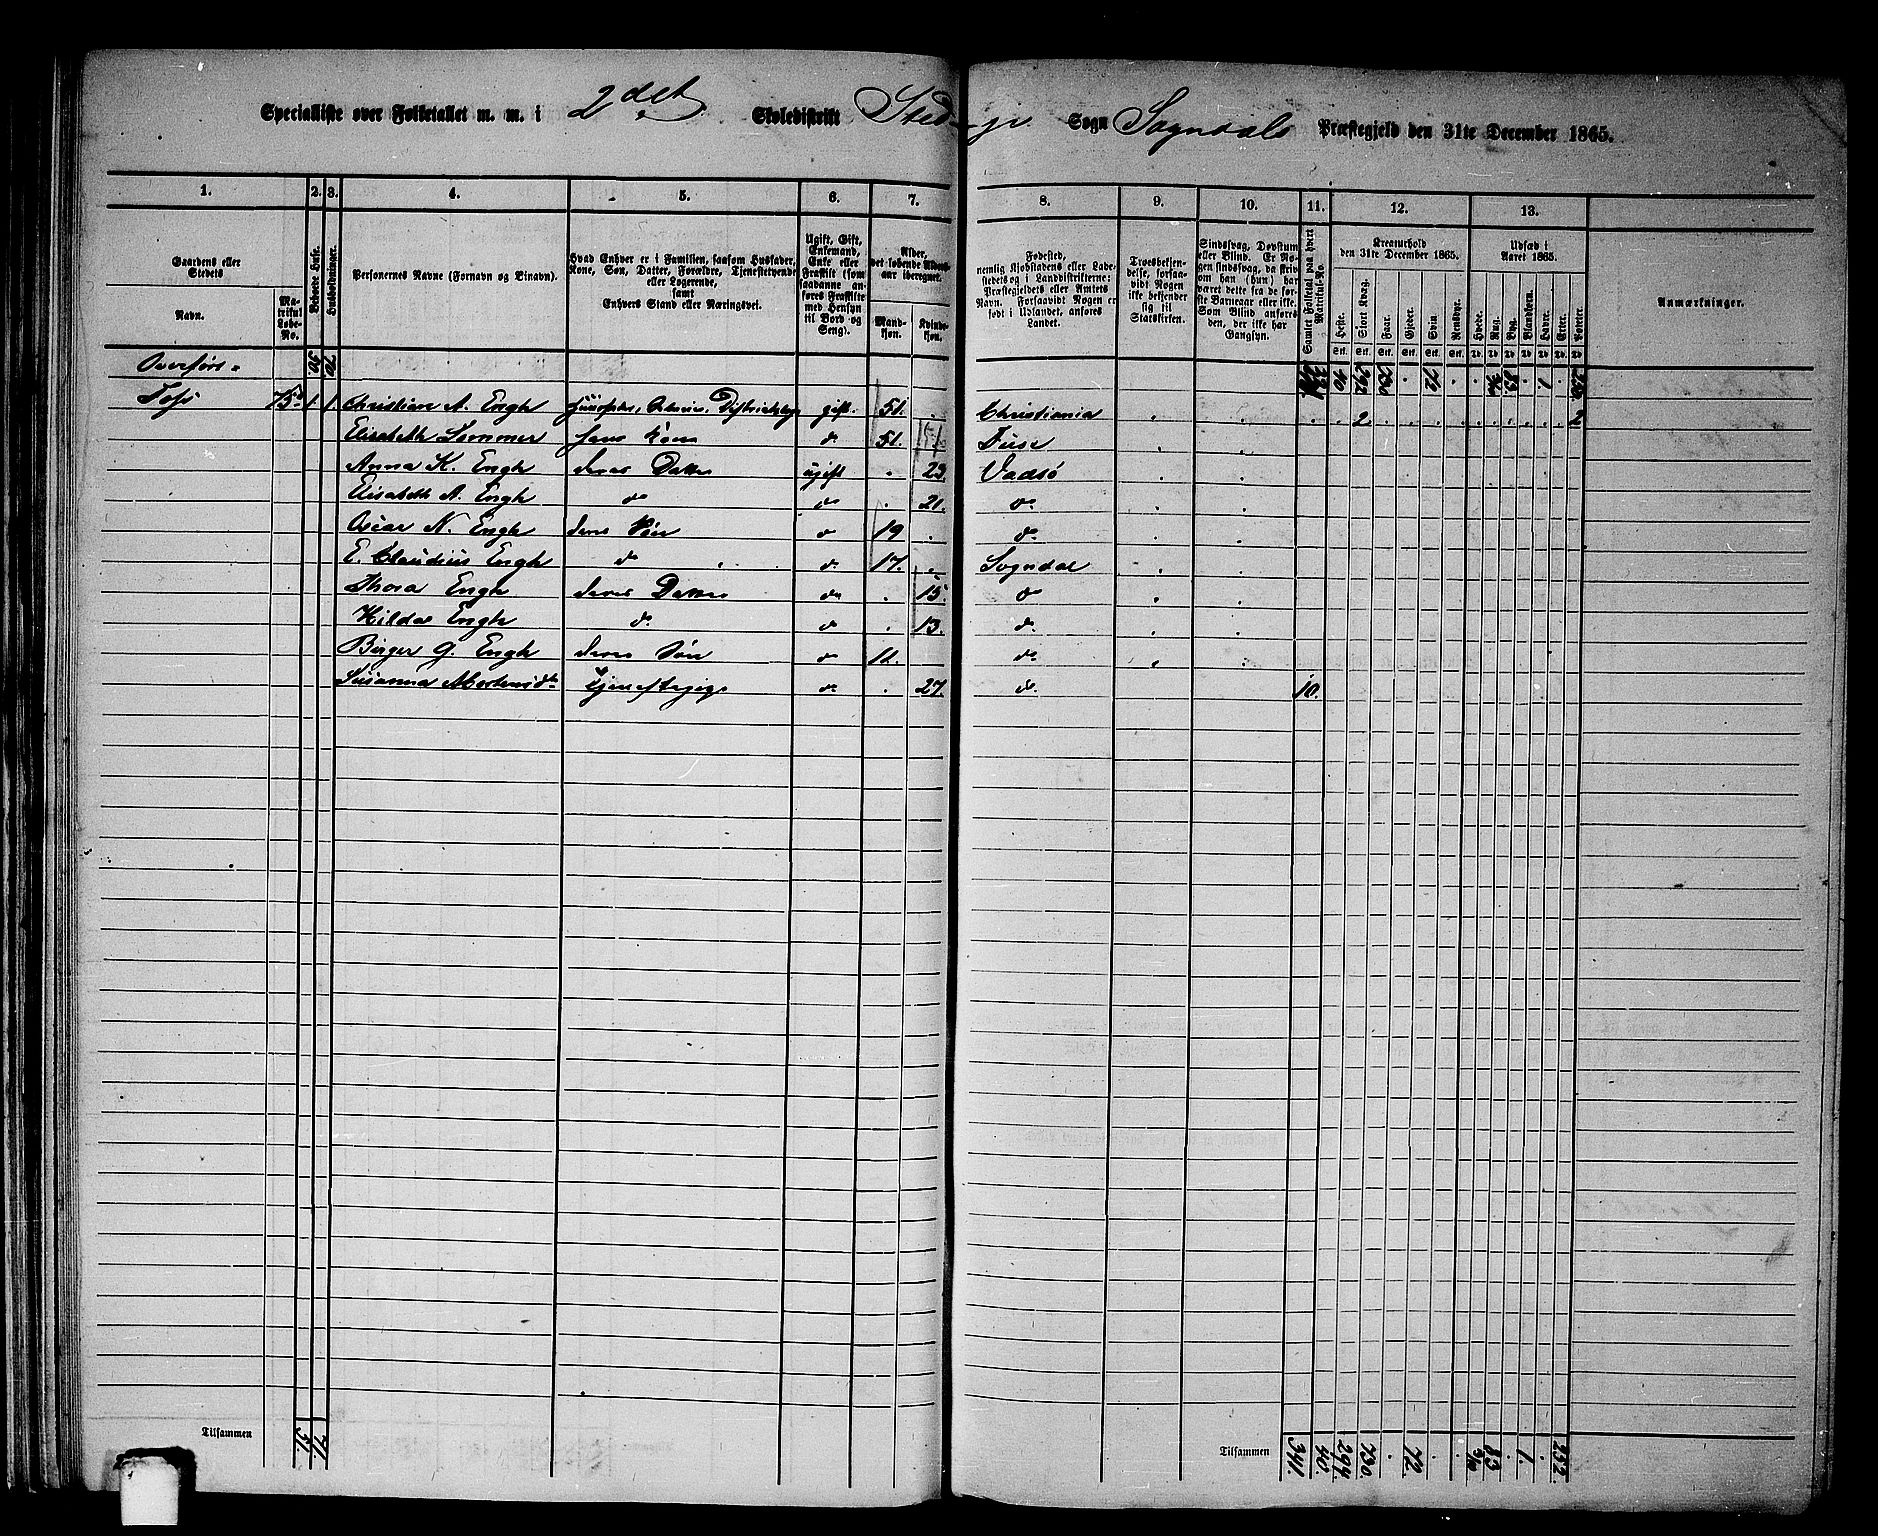 Specialliste over Folketallet m. m. i 2det Skoledistrikt Stedje Sogn Sogndals Præstegjeld den 31te December 1865.
1. 2. 3. 4. 5. 6. 7. 8. 9. 10. 11. 12. 13.
Gaardens eller Stedets
Navn.
Matrikul Løbe-No.
Beboede Huse.
Husholdninger.
Personernes Navne (Fornavn og Binavn).
Hvad Enhver er i Familien, saasom Husfader, Kone, Søn, Datter, Forældre, Tjenestetyende eller Logerende, samt Enhvers Stand eller Næringsvei.
Ugift, Gift, Enkemand, Enke eller Fraskilt (saadanne anføres Fraskilte med Hensyn til Bord og Seng).
Alder, det løbende Aldersaar iberegnet.
Mandkjøn.
Kvindekjøn.
Fødested, nemlig Kjøbstadens eller Ladestedets og i Landdistrikterne: Præstegjeldets eller Amtets Navn. Forsaavidt Nogen er født i Udlandet, anføres Landet.
Troesbekjendelse, forsaavidt Nogen ikke bekjender sig til Statskirken.
Sindssvag, Døvstum eller Blind. Er Nogen sindssvag, da skrives om han (hun) har været dette fra de første Barneaar eller ikke. Som Blind anføres den, der ikke har Gangsyn.
Samlet Folketal paa hvert Matrikul-No.
Kreaturhold den 31te December 1865.
Heste. Stort Kvæg. Faar. Gjeder. Svin. Rensdyr.
Udsæd i Aaret 1865.
Hvede. Rug. Byg. Blandkorn. Havre. Erter. Poteter.
Anmærkninger.
Overført 50. 70. 40 292 730 . 72 . . 83. . 1 .
Christian A. Engh gift. 51. . Christiania . . . . 2
Elisabeth Sommer hans Kone do 51. Fuse
Anna K. Engh deres Datter ugift . 22. Vadsø
Elisabeth A. Engh do do . 21. do
Oscar N. Engh deres Søn do 19 . do
E. Claudius Engh do do 17. . Sogndal
Thora Engh deres Datter do . 15. do
Hilda Engh do do . 13. do
Birger G. Engh deres Søn do 11. do
Susanna do . 27. do 10.
Tilsammen 51. 71.
Tilsammen 341. 40 294 730. . 72. . . 83 . 1. . 232